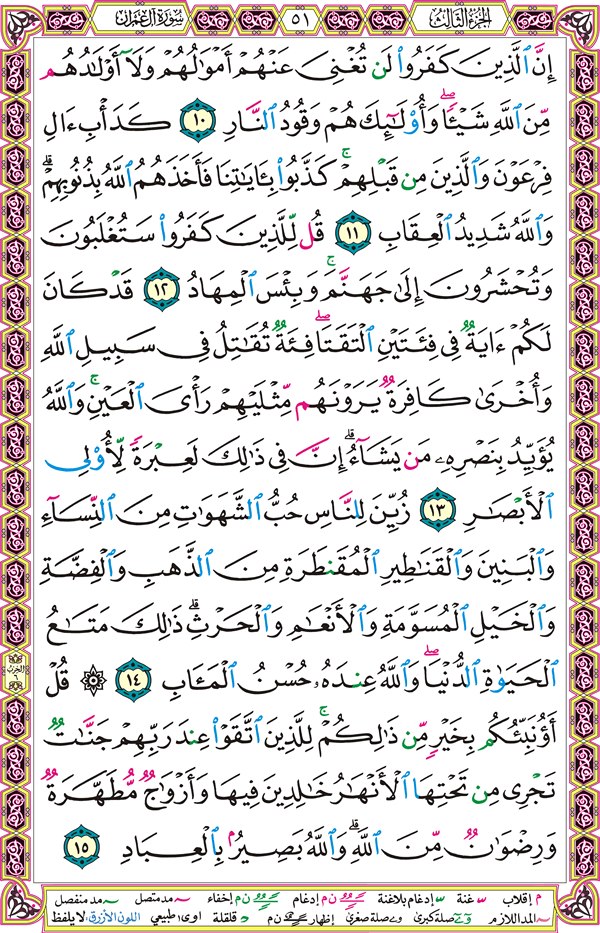 الجزء الثالث
٥١
سورة آل عمران
إِنَّ ٱلَّذِينَ كَفَرُوا۟ لَن تُغْنِىَ عَنْهُمْ أَمْوَٰلُهُمْ وَلَآ أَوْلَٰدُهُم
مِّنَ ٱللَّهِ شَيْـًٔا ۖ وَأُو۟لَٰٓئِكَ هُمْ وَقُودُ ٱلنَّارِ ١٠ كَدَأْبِ ءَالِ
فِرْعَوْنَ وَٱلَّذِينَ مِن قَبْلِهِمْ ۚ كَذَّبُوا۟ بِـَٔايَٰتِنَا فَأَخَذَهُمُ ٱللَّهُ بِذُنُوبِهِمْ ۗ
وَٱللَّهُ شَدِيدُ ٱلْعِقَابِ ١١ قُل لِّلَّذِينَ كَفَرُوا۟ سَتُغْلَبُونَ
وَتُحْشَرُونَ إِلَىٰ جَهَنَّمَ ۚ وَبِئْسَ ٱلْمِهَادُ ١٢ قَدْ كَانَ
لَكُمْ ءَايَةٌ فِى فِئَتَيْنِ ٱلْتَقَتَا ۖ فِئَةٌ تُقَٰتِلُ فِى سَبِيلِ ٱللَّهِ
وَأُخْرَىٰ كَافِرَةٌ يَرَوْنَهُم مِّثْلَيْهِمْ رَأْىَ ٱلْعَيْنِ ۚ وَٱللَّهُ
يُؤَيِّدُ بِنَصْرِهِۦ مَن يَشَآءُ ۗ إِنَّ فِى ذَٰلِكَ لَعِبْرَةً لِّأُو۟لِى
ٱلْأَبْصَٰرِ ١٣ زُيِّنَ لِلنَّاسِ حُبُّ ٱلشَّهَوَٰتِ مِنَ ٱلنِّسَآءِ
وَٱلْبَنِينَ وَٱلْقَنَٰطِيرِ ٱلْمُقَنطَرَةِ مِنَ ٱلذَّهَبِ وَٱلْفِضَّةِ
وَٱلْخَيْلِ ٱلْمُسَوَّمَةِ وَٱلْأَنْعَٰمِ وَٱلْحَرْثِ ۗ ذَٰلِكَ مَتَٰعُ
ٱلْحَيَوٰةِ ٱلدُّنْيَا ۖ وَٱللَّهُ عِندَهُۥ حُسْنُ ٱلْمَـَٔابِ ١٤ ۞ قُلْ
أَؤُنَبِّئُكُم بِخَيْرٍ مِّن ذَٰلِكُمْ ۚ لِلَّذِينَ ٱتَّقَوْا۟ عِندَ رَبِّهِمْ جَنَّٰتٌ
تَجْرِى مِن تَحْتِهَا ٱلْأَنْهَٰرُ خَٰلِدِينَ فِيهَا وَأَزْوَٰجٌ مُّطَهَّرَةٌ
وَرِضْوَٰنٌ مِّنَ ٱللَّهِ ۗ وَٱللَّهُ بَصِيرٌۢ بِٱلْعِبَادِ ١٥
الحزب
٦
م إقلاب غنة إدغام بلاغنة ن م إدغام ن م إخفاء مد متصل مد منفصل
المد اللازم صلة كبرى صلة صغرى إظهار ن م قلقلة اوى طبيعي اللون الأزرق: لا يلفظ